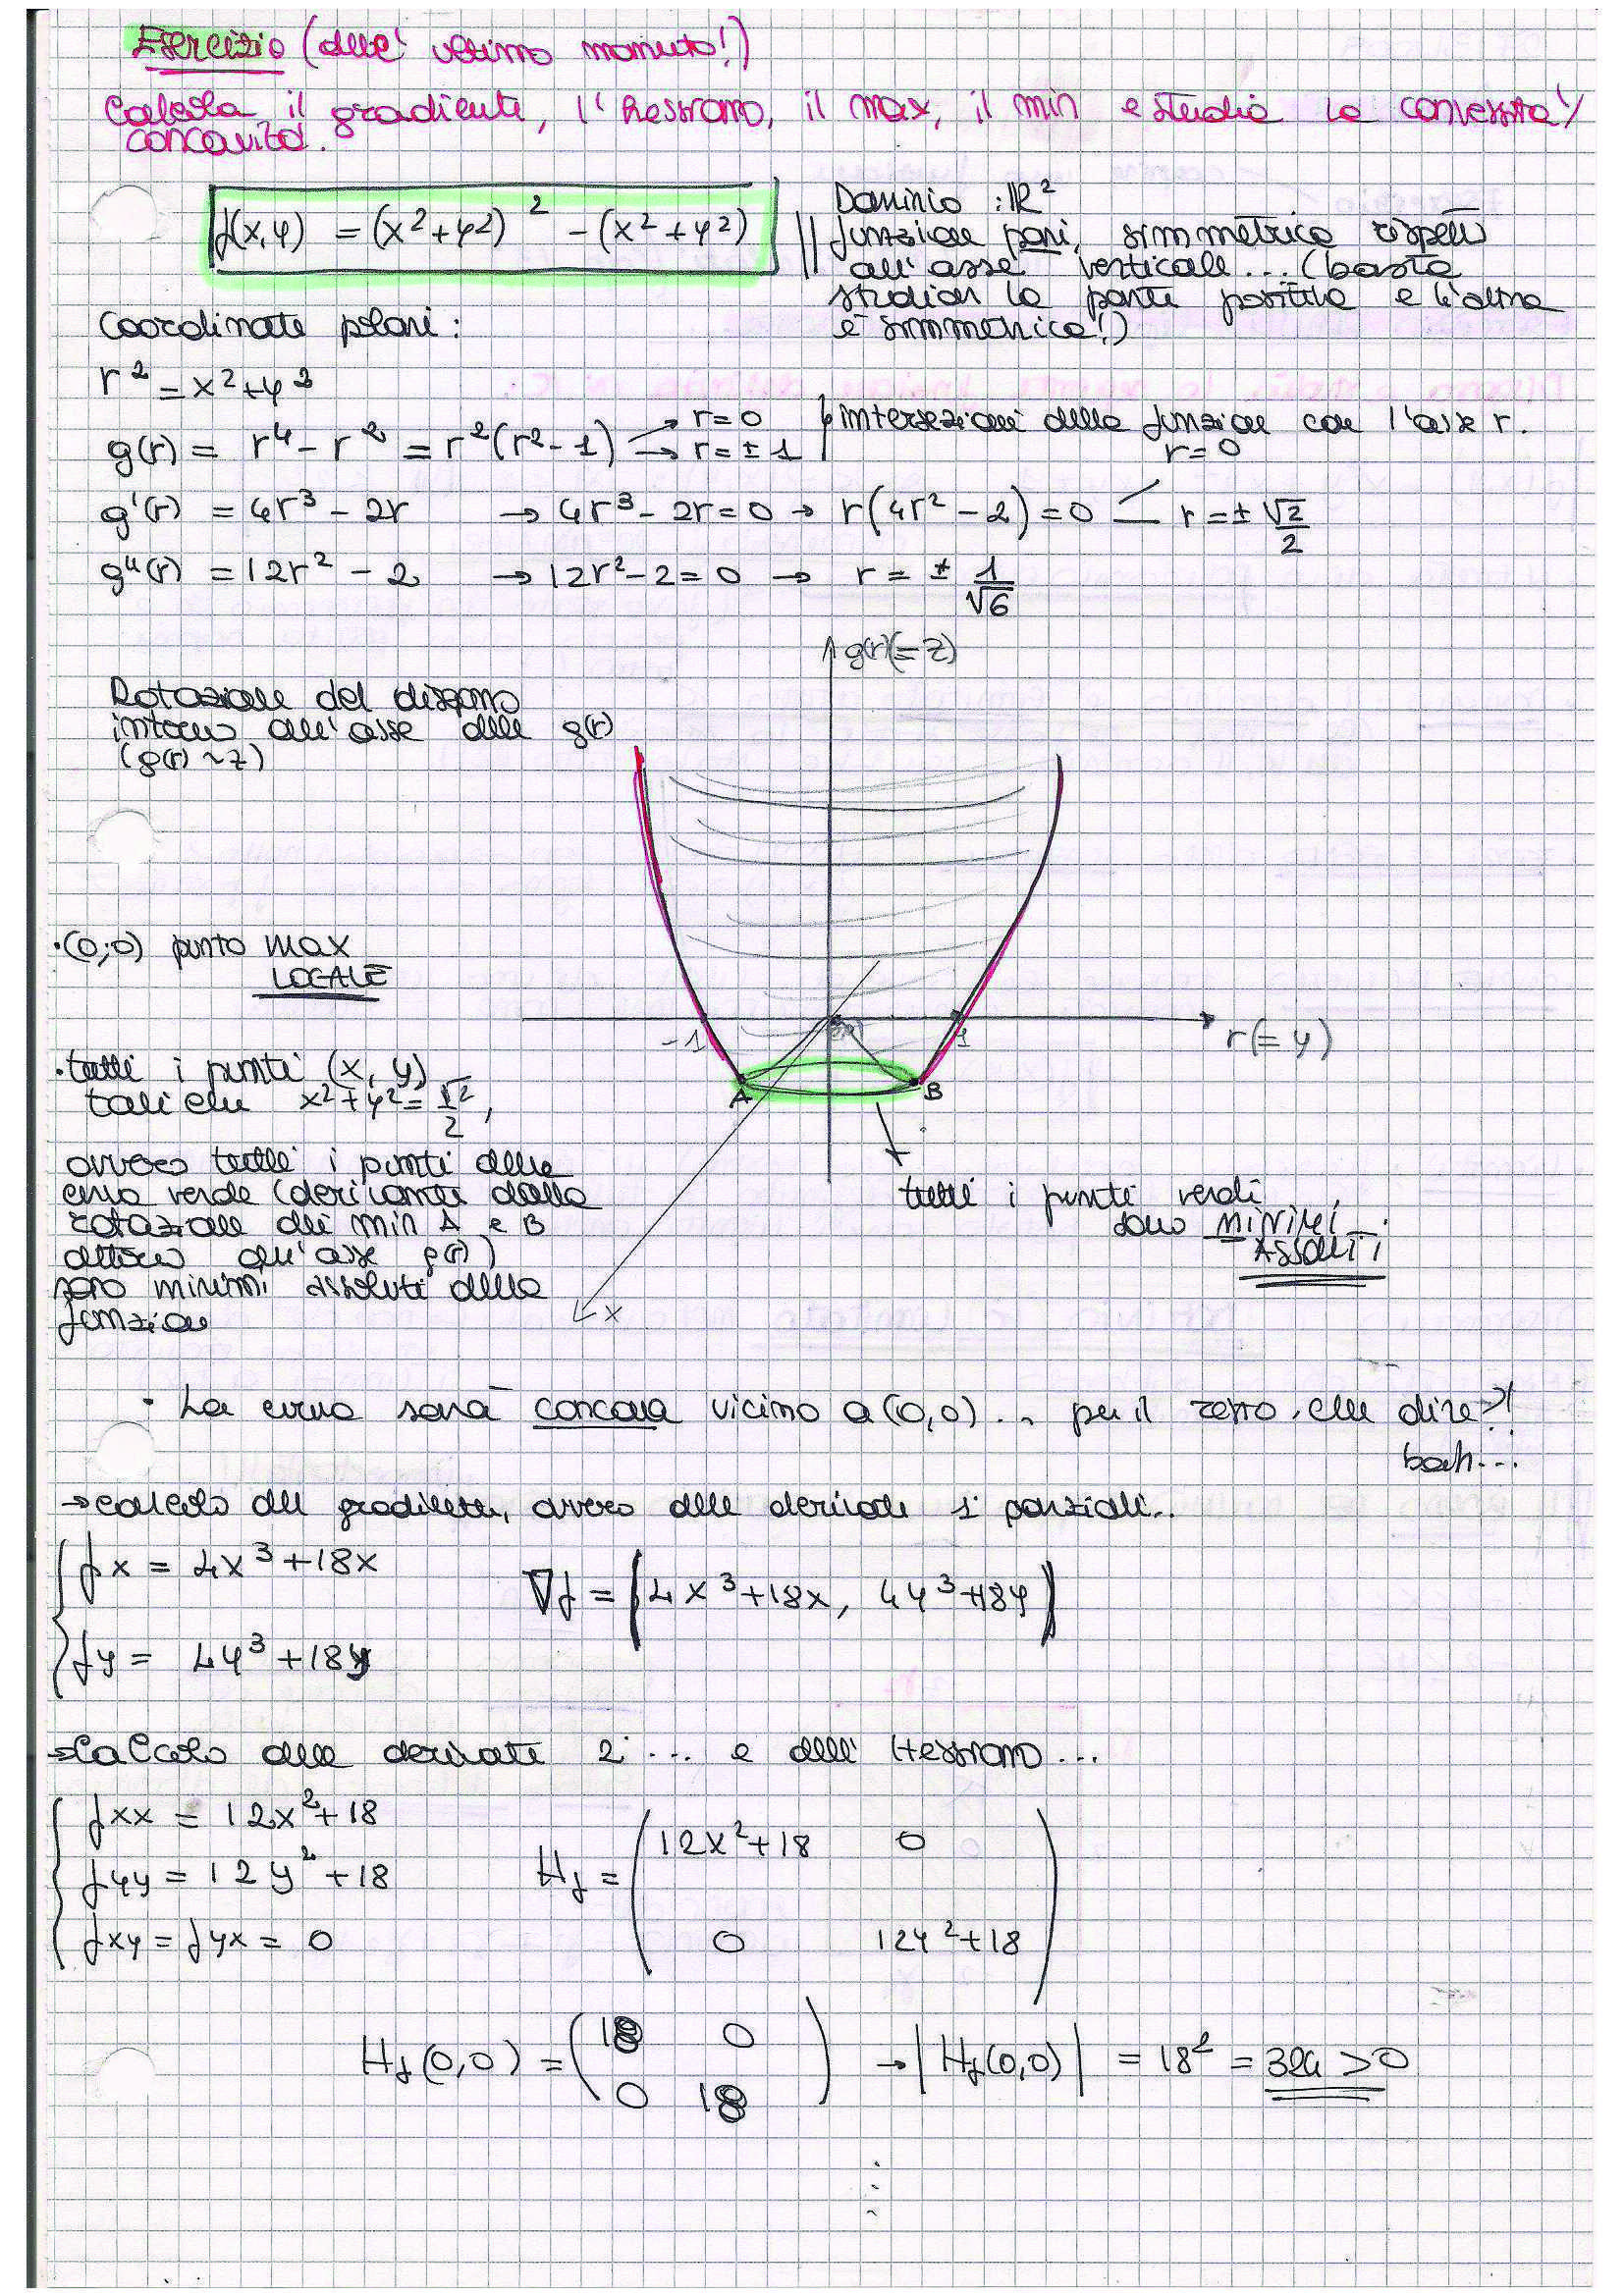 Esercizio (dell' ultimo momento!)
Calcola il gradiente, l'hessiano, il max, il min e studia la convessità/
concavità.
f(x,y) = (x²+y²)² - (x²+y²)
Dominio : ℝ²
funzione pari, simmetrica rispetto
all'asse verticale... (basta
studiare la parte positiva e l'altra
è simmetrica!)
Coordinate polari:
r² = x²+y²
g(r) = r⁴ - r² = r²(r²-1) → r=0 → r=±1
intersezioni della funzione con l'asse r.
g'(r) = 4r³ - 2r → 4r³ - 2r = 0 → r(4r² - 2) = 0 r=0 r=± √2/2
g"(r) = 12r² - 2 → 12r² - 2 = 0 → r = ± 1/√6
g(r)(=z)
Rotazione del disegno
intorno all'asse delle g(r)
(g(r) ~ z)
•(0;0) punto max
LOCALE
-1
1
r(=y)
A
B
x
•tutti i punti (x, y)
tali che x²+y² = √2/2,
ovvero tutti i punti della
curva verde (derivante dalla
rotazione dei min A e B
attorno all'asse g(r))
sono minimi assoluti della
funzione
tutti i punti verdi
sono MINIMI
ASSOLUTI
• La curva sarà concava vicino a (0,0)... per il resto, che dire?!
boh...
→calcolo del gradiente, ovvero delle derivate 1ᵉ parziali..
fx = 4x³+18x
fy = 4y³+18y
∇f = (4x³+18x, 4y³+18y)
→Calcolo delle derivate 2ᵉ ... e dell' Hessiano...
fxx = 12x²+18
fyy = 12y²+18
fxy = fyx = 0
Hf = (12x²+18 0
0 12y²+18)
Hf(0,0) = (18 0
0 18) → |Hf(0,0)| = 18² = 324 > 0
⋮